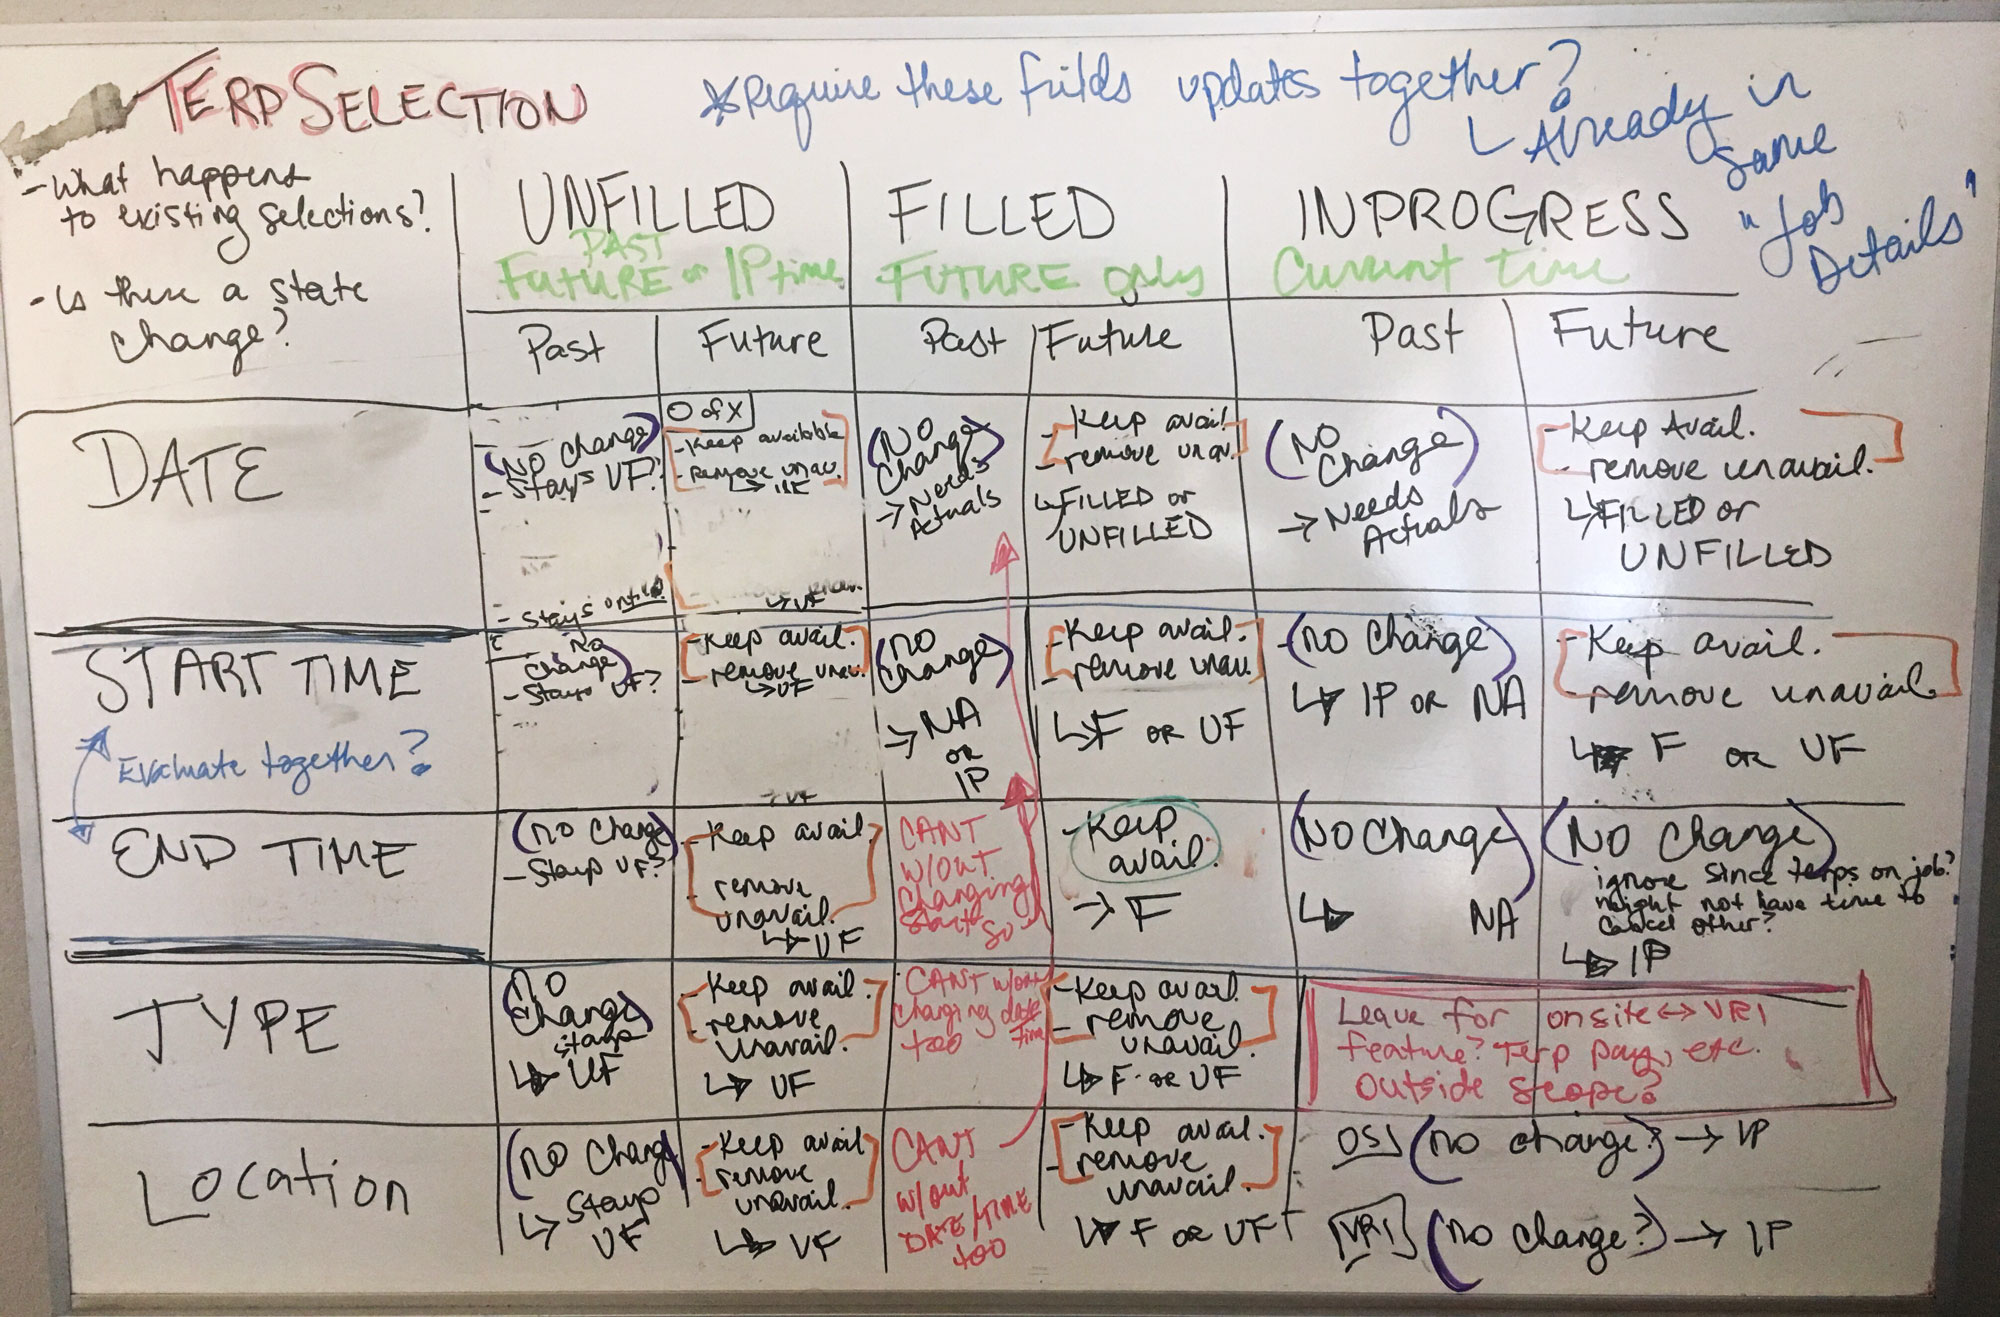 TERP SELECTION
*Require these fields updates together?
↳ Already in
same
"Job
Details"
- What happens
to existing selections?
- is there a state
change?
UNFILLED
PAST
FUTURE or IP time
FILLED
FUTURE only
INPROGRESS
Current time
Past
Future
Past
Future
Past
Future
DATE
(No change)
- Stays UF?
- Stays
0 of X
- Keep available
- remove unav.
↳ UF
↳ UF
(No
Change)
→ Needs
Actuals
- Keep avail
- remove unav.
↳ FILLED or
UNFILLED
(No
Change)
→ Needs
Actuals
- Keep Avail.
- remove unavail.
↳ FILLED or
UNFILLED
START TIME
Evaluate together?
No
Change)
- Stays UF?
- Keep avail.
- remove unav.
↳ UF
(no
change)
→ NA
or
IP
- Keep avail.
- remove unav.
↳ F or UF
(no change)
↳ IP or NA
- Keep avail.
- remove unavail.
↳ F or UF
END TIME
(no change)
- Stays UF?
→ UF
- Keep avail.
- remove
unavail.
↳ UF
CANT
w/out
changing
start
so
- Keep
avail.
→ F
(No Change)
↳ NA
(No Change)
ignore since terps on job?
might not have time to
cancel other?
↳ IP
TYPE
(no
Change)
stays
↳ UF
- Keep avail.
- remove
unavail.
↳ UF
CANT w/out
changing date
time
too
- Keep avail.
- remove
unavail.
↳ F or UF
Leave for onsite ↔ VRI
feature? Terp pay, etc.
outside scope?
Location
(no change)
Stays
↳ UF
- Keep avail
- remove
unavail.
↳ UF
CANT
w/out
DATE/TIME
too
- Keep avail.
- remove
unavail.
↳ F or UF
OSI (no change?) → IP
VRI (no change?) → IP